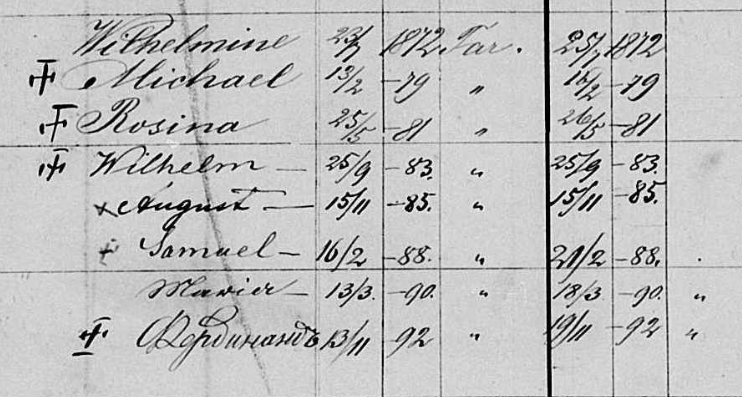 Wilhelmine 23/7 1872 Tar. 25/7 1872
Michael 13/2 -79 " 16/2 -79
Rosina 25/5 -81 " 26/5 -81
Wilhelm — 25/9 -83. " 25/9 -83.
August — 15/11 -85. " 15/11 -85.
Samuel — 16/2 -88. " 21/2 -88. .
Maria — 13/3. -90. " 18/3 -90. "
Фердинандъ 13/11 -92 " 19/11 -92 "